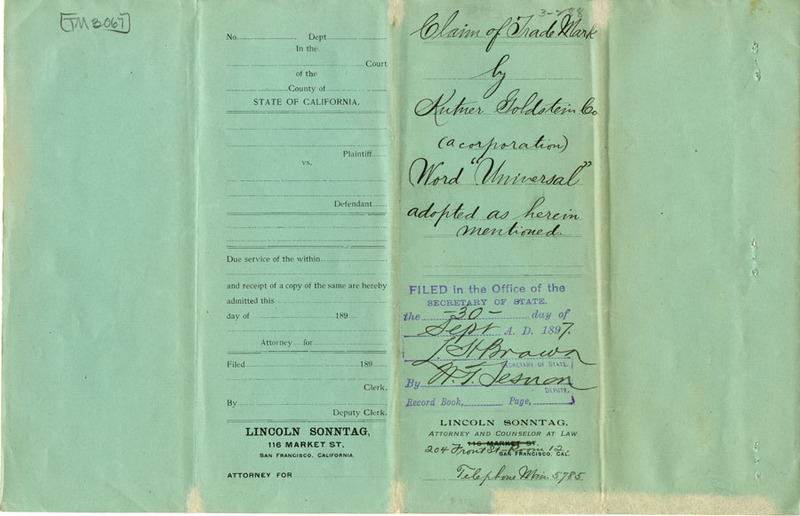 TM 3067
No. Dept
In the
Court
of the
County of
STATE OF CALIFORNIA.
Plaintiff
vs.
Defendant
Due service of the within
and receipt of a copy of the same are hereby
admitted this
day of 189
Attorney for
Filed 189
Clerk.
By
Deputy Clerk.
LINCOLN SONNTAG,
116 MARKET ST.
SAN FRANCISCO, CALIFORNIA.
ATTORNEY FOR
Claim of Trade Mark
by
Kutner Goldstein Co
(a corporation)
Word "Universal"
adopted as herein
mentioned.
FILED in the Office of the
SECRETARY OF STATE.
the -30- day of
Sept A. D. 1897.
L. H. Brown
SECRETARY OF STATE.
By
DEPUTY.
Record Book, Page,
LINCOLN SONNTAG,
ATTORNEY AND COUNSELOR AT LAW
116 MARKET ST.
204 Front St. Room 12
SAN FRANCISCO, CAL.
Telephone Main 5785